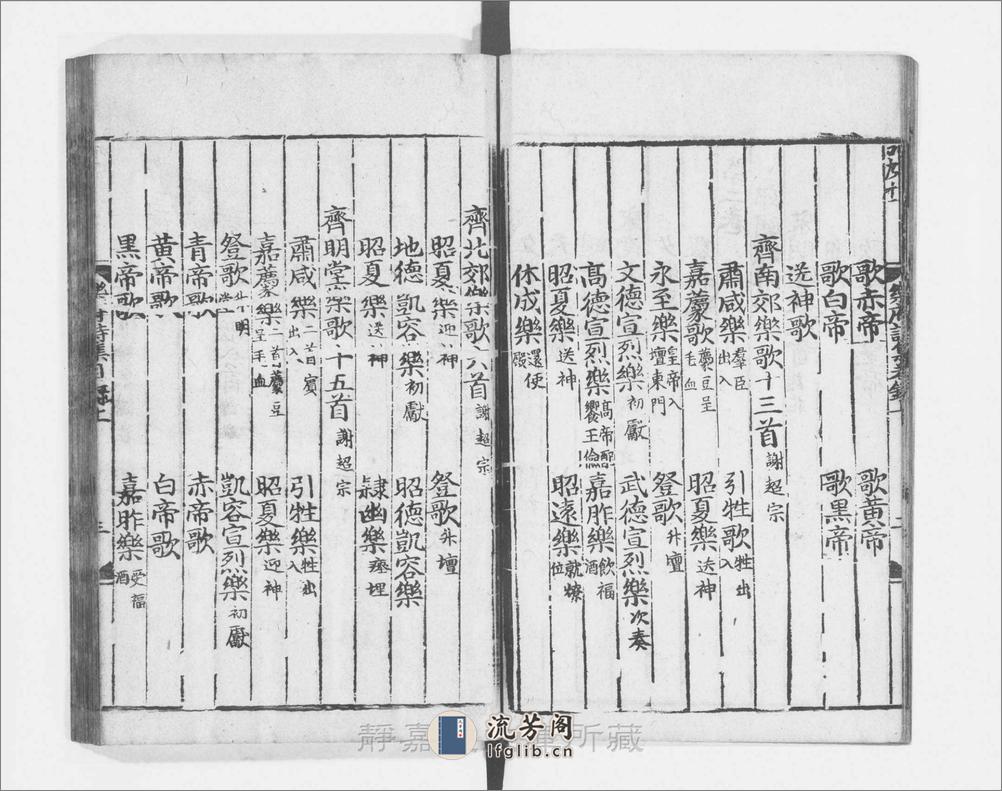 歌赤帝 歌黃帝
歌白帝 歌黑帝
送神歌
齊南郊樂歌十三首 謝超宗
肅咸樂 羣臣出入 引牲歌 牲出入
嘉薦歌 薦豆呈毛血 昭夏樂 送神
永至樂 皇帝入壇東門 登歌 升壇
文德宣烈樂 初獻 武德宣烈樂 次奏
高德宣烈樂 高帝配饗 嘉胙樂 飲福酒
昭夏樂 送神 昭遠樂 就燎位
休成樂 還便殿
齊北郊樂歌六首 謝超宗
昭夏樂 迎神 登歌 升壇
地德凱容樂 初獻 昭德凱容樂
昭夏樂 送神 隸幽樂 瘞埋
齊明堂樂歌十五首 謝超宗
肅咸樂 二首賓出入 引牲樂 牲出入
嘉薦樂 二首薦豆呈毛血 昭夏樂 迎神
登歌 升明堂 凱容宣烈樂 初獻
青帝歌 赤帝歌
黃帝歌 白帝歌
黑帝歌 嘉胙樂 受福酒
樂府詩集目錄上
三
靜嘉 所藏
流芳阁
lfglib.cn